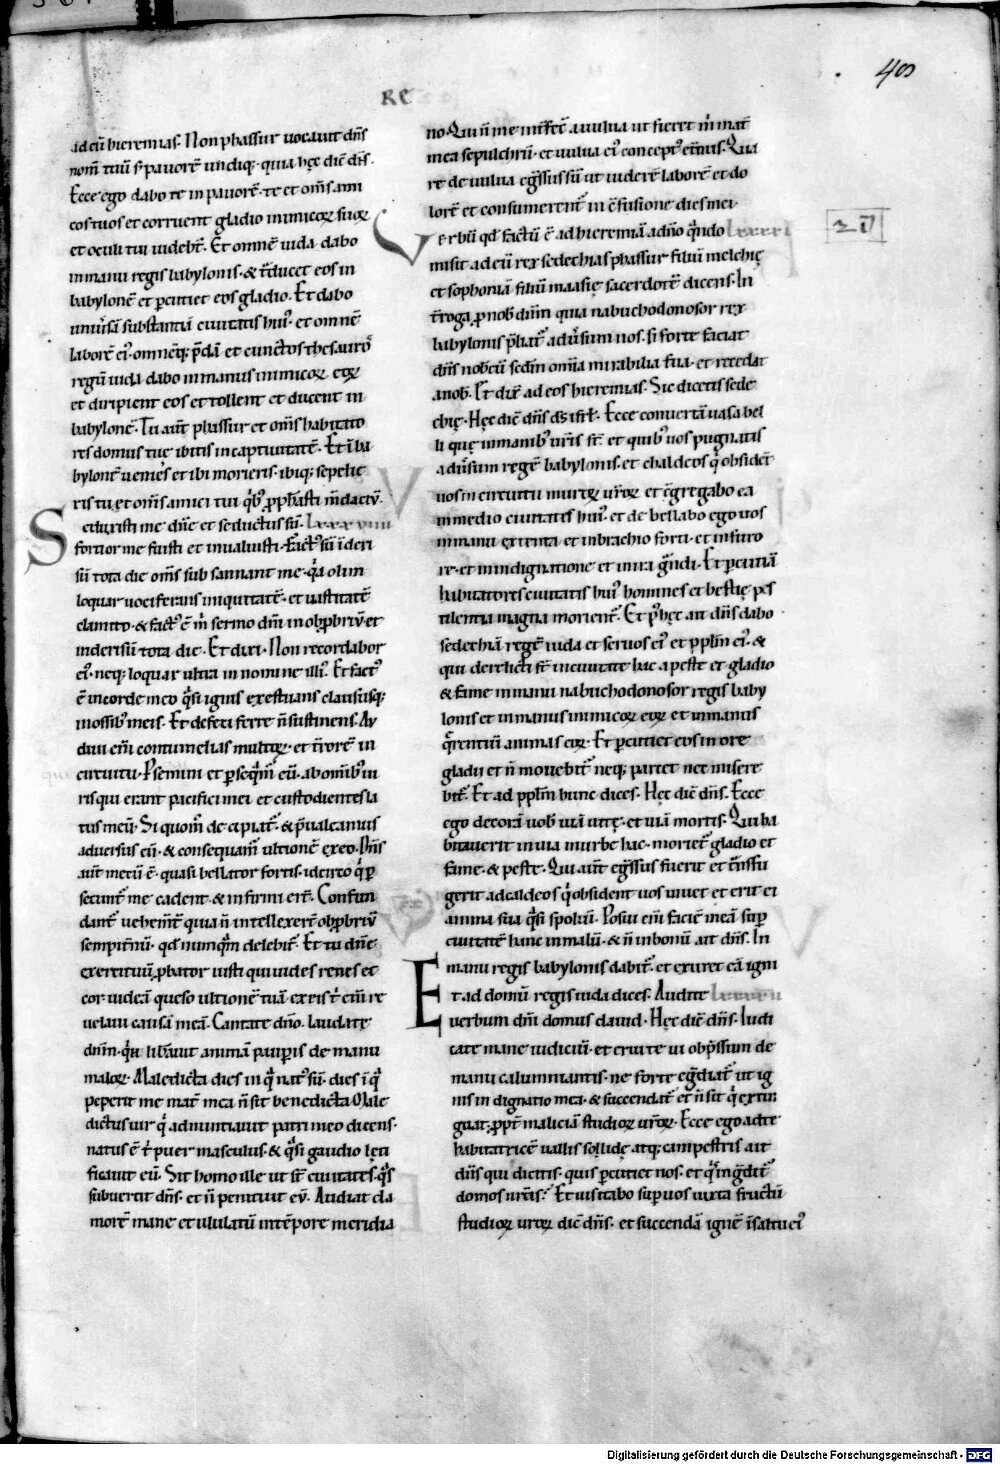 40
RE
ad eū hieremias. Non phassur uocauit dn̄s
nom̄ tuū s; pauorē undiq;. quia hęc dic̄ dn̄s.
Ecce ego dabo te in pauorē. te et om̄s ami
cos tuos et corruent gladio inimicoꝝ suoꝝ
et oculi tui uidebt̄. Et omnē iuda dabo
in manu regis babylonis. & t̄ducet eos in
babylonē et ꝑcutiet eos gladio. Et dabo
uniu̾sā substantiā ciuitatis huiꝰ. et omnē
laborē eiꝰ. omnēq; p̄dā et cunctos thesauro̅
regū iuda dabo in manus inimicoꝝ eoꝝ
et diripient eos et tollent et ducent in
babylonē. Tu aut̄ phassur et om̄s habitato
res domus tuę ibitis in captiuitatē. Et ī ba
bylonē uenies et ibi morieris. ibiq; sepelie
ris tu et om̄s amici tui qͥbꝰ ꝓphasti m̄daciū.
Seduxisti me dn̄e et seductus sū. lxxxuiiii
fortior me fuisti et inualuisti. Factꝰ sū ī deri
sū tota die om̄s sub sannant me. qͣa olim
loquar uociferans iniquitatē. et uastitatē
clamito. & factꝰ ē m̄ sermo dn̄i in obꝓbriū et
in derisū tota die. Et dixi. Non recordabor
eiꝰ. neq; loquar ultra in nomine illiꝰ. Et factꝰ
ē in corde meo qͣsi ignis exestuans claususq;
in ossibꝰ meis. Et defeci ferre n̄ sustinens. Au
diui em̄ contumelias multoꝝ. et t̄rorē in
circuitu. Ꝑsemini et ꝑseqͣm̄ eū. ab om̄ibꝰ ui
ris qui erant pacifici mei et custodientes la
tus meū. Si quom̄ decipiat̄. & p̄ualeamus
aduersus eū. & consequam̄ ultionē ex eo. Dn̄s
aut̄ mecū ē. quasi bellator fortis. idcirco qͥ ꝑ
secunt̄ me cadent & infirmi er̄t. Confun
dant̄ uehem̄t quia n̄ intellexer̄t obꝓbriū
sempit̄nū. qd̄ numqͣm delebit̄. Et tu dn̄e
exercituū ꝓbator iusti qui uides renes et
cor. uideā queso ultionē tuā ex eis t̄ em̄ re
uelaui causā meā. Cantate dn̄o. laudate
dn̄m. qͥa lib̄auit animā pauꝑis de manu
maloꝝ. Maledicta dies in qͣ natꝰ sū. dies ī qͣ
peperit me mat̄ mea n̄ sit benedicta Male
dictus uir qͥ adnuntiauit patri meo dicens.
natus ē t̄ puer masculus. & qͣsi gaudio lęti
ficauit eū. Sit homo ille ut st̄ ciuitates. qͣs
subuertit dn̄s. et n̄ penituit eū. Audiat cla
morē mane et ululatū in tēpore meridia
no. Qui n̄ me int̄fecit a uulua ut fieret m̄ mat̄
mea sepulchrū. et uulua eiꝰ conceptꝰ et̄nus. Qua
re de uulua egressus sū ut uiderē laborē et do
lorē et consumerent̄ in cōfusione dies mei.
Verbū qd̄ factū ē ad hieremiā a dn̄o quando lxxxxi
misit ad eū rex sedechias phassur filiū melchię
et sophoniā filiū maasię sacerdotē dicens. In
t̄roga ꝓ nob̄ dn̄m quia nabuchodonosor rex
babylonis p̄liat̄ adu̾sum nos. si forte faciat
dn̄s nob̄cū sedm̄ omīa mirabilia sua. et recedat
a nob̄. Et dix̄ ad eos hieremias. Sic dicetis sede
chię. Hęc dic̄ dn̄s ds̄ isrl̄. Ecce conuertā uasa bel
li quę in manibꝰ ur̄is st̄. et quibꝰ uos pugnatis
adu̾sum regē babylonis. et chaldeos qͥ obsidēt
uos in circuitu muroꝝ ur̄oꝝ et cōgregabo ea
in medio ciuitatis huiꝰ. et debellabo ego uos
in manu extenta et in brachio forti. et in furo
re. et in indignatione et in ira grandi. Et ꝑcutiā
habitatores ciuitatis huiꝰ homines et bestię pes
tilentia magna morient̄. Et pꝰ hęc ait dn̄s dabo
sedechiā regē iuda et seruos eiꝰ et pplm̄ eiꝰ. &
qui derelicti st̄ in ciuitate hac a peste et gladio
& fame in manu nabuchodonosor regis baby
lonis et in manus inimicoꝝ eoꝝ et in manus
qͣrentiū animas eoꝝ. Et ꝑcutiet eos in ore
gladii et n̄ mouebit̄ neq; parcet nec misere
bit̄. Et ad pplm̄ hunc dices. Hęc dic̄ dn̄s. Ecce
ego do corā uob̄ uiā uitę. et uiā mortis. Qui ha
bitauerit in uia in urbe hac. moriet̄ gladio et
fame. & peste. Qui aut̄ egressus fuerit et t̄nsfu
gerit ad caldeos qͥ obsident uos uiuet et erit ei
anima sua qͣsi spoliū. Posui em̄ faciē meā suꝑ
ciuitatē hanc in malū. & n̄ in bonū ait dn̄s. In
manu regis babylonis dabit̄. et exuret eā igni
Et ad domū regis iuda dices. Audite
uerbum dn̄i domus dauid. Hęc dic̄ dn̄s. Iudi
cate mane iudiciū. et eruite ui opp̄ssum de
manu calumniantis. ne forte egrediat̄ ut ig
nis indignatio mea. & succendat̄ et n̄ sit qͥ extin
guat. ꝓpt̄ maliciā studioꝝ ur̄oꝝ. Ecce ego ad te
habitatricē uallis solidę atq; campestris ait
dn̄s qui dicitis. quis ꝑcutiet nos. et qͥs ingredit̄
domos ur̄as. Et uisitabo suꝑ uos iuxta fructū
studioꝝ uroꝝ dic̄ dn̄s. et succendā ignē ī saltu eiꝰ
Digitalisierung gefördert durch die Deutsche Forschungsgemeinschaft - DFG